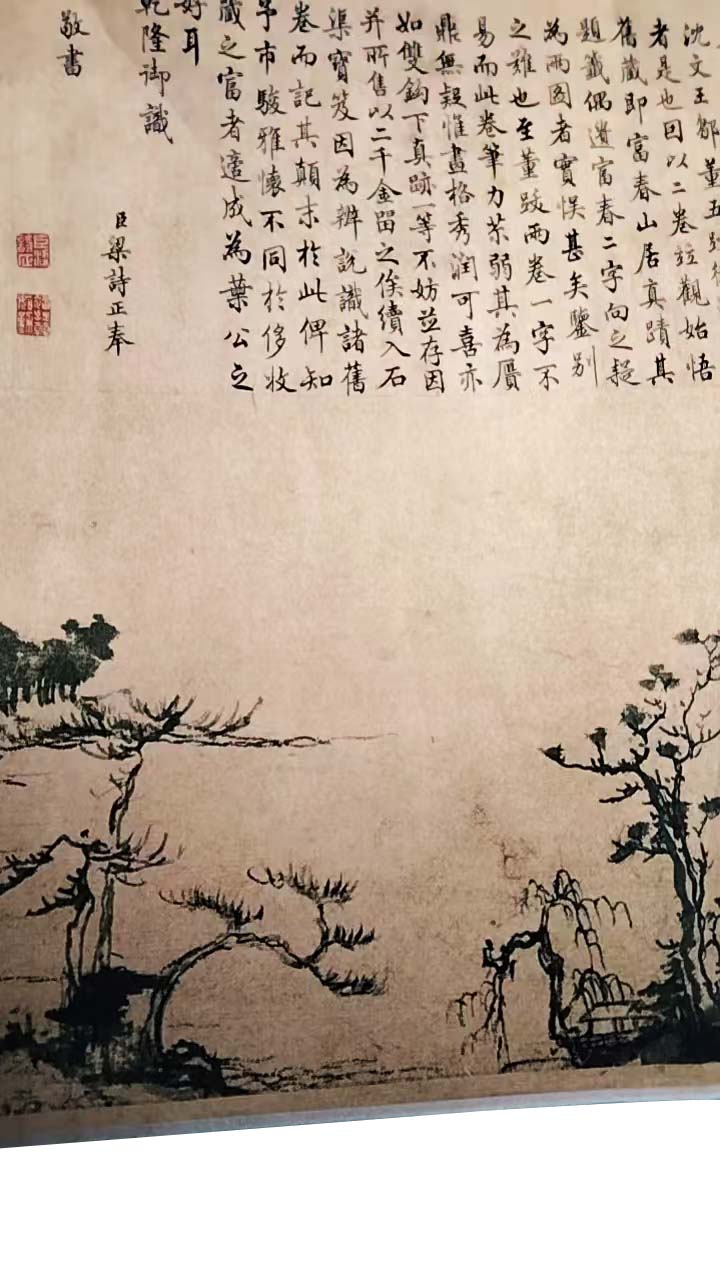 沈文王鄒董五跋
者是也因以二卷竝觀始悟
舊藏即富春山居真蹟其
題籤偶遺富春二字向之疑
為兩圖者實悮甚矣鑒别
之難也至董跋兩卷一字不
易而此卷筆力苶弱其為贋
鼎無疑惟畫格秀潤可喜亦
如雙鈎下真跡一等不妨竝存因
并所售以二千金留之俟續入石
渠寶笈因為辨說識諸舊
卷而記其顛末於此俾知
予市駿雅懷不同於侈收
藏之富者適成為葉公之
好耳
乾隆御識
臣梁詩正奉
敬書